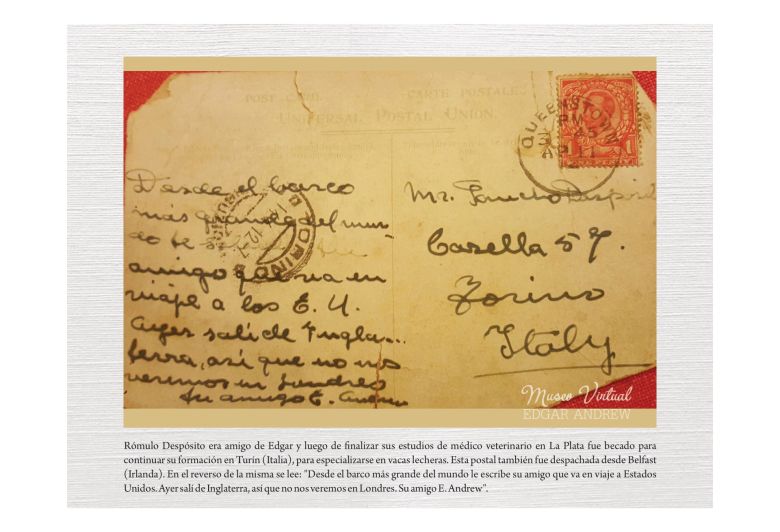 POST CARD.
CARTE POSTALE.
UNIVERSAL POSTAL UNION.
QUEENSTOWN
PM
45
AP 11
1
Desde el barco
más grande del mun-
do te
amigo que va en
viaje a los E. U.
Ayer salí de Ingla-
terra, así que no nos
veremos en Londres
Su amigo E. Andrew
TORINO
12
Mr.
Casella 57.
Torino
Italy
Museo Virtual
EDGAR ANDREW
Rómulo Despósito era amigo de Edgar y luego de finalizar sus estudios de médico veterinario en La Plata fue becado para
continuar su formación en Turín (Italia), para especializarse en vacas lecheras. Esta postal también fue despachada desde Belfast
(Irlanda). En el reverso de la misma se lee: "Desde el barco más grande del mundo le escribe su amigo que va en viaje a Estados
Unidos. Ayer salí de Inglaterra, así que no nos veremos en Londres. Su amigo E. Andrew".